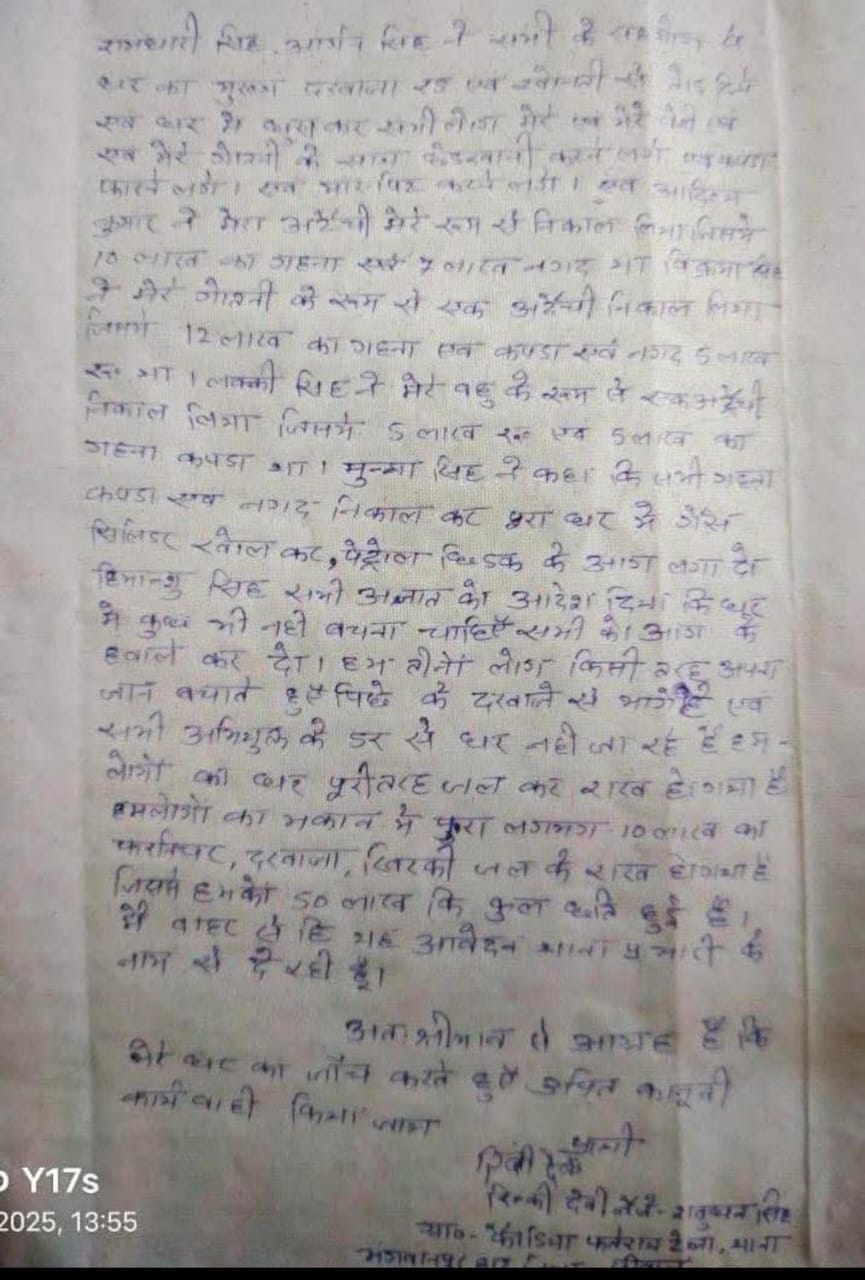 रामधारी सिंह, आर्यन सिंह ने सभी के सहयोग से
घर का मुख्य दरवाजा रड एवं से तोड़ दिये
एवं घर में घुस कर सभी लोग मेरे एवं मेरे बेटी एवं
एवं मेरे गोतनी के साथ छेडखानी करने लगे एवं कपडा
फारने लगे। एवं मारपिट करने लगे। एवं आदित्य
कुमार ने मेरा अटैची मेरे रूम से निकाल लिया जिसमे
10 लाख का गहना एवं 7 लाख नगद था विक्रमा सिंह
ने मेरे गोतनी के रूम से एक अटैची निकाल लिया
जिसमे 12 लाख का गहना एवं कपडा एवं नगद 5 लाख
रू० था। लक्की सिंह ने मेरे बहु के रूम से एक अटैची
निकाल लिया जिसमे 5 लाख रू० एवं 5 लाख का
गहना कपडा था। मुन्ना सिंह ने कहा कि सभी गहना
कपडा एवं नगद निकाल कर पुरा घर मे गैस
सिलिंडर खोल कर, पेट्रोल छिडक के आग लगा दो
हिमान्शु सिंह सभी अज्ञात को आदेश दिया कि घर
मे कुछ भी नही बचना चाहिऐ सभी को आग के
हवाले कर दो। हम तीनो लोग किसी तरह अपना
जान बचाते हुऐ पिछे के दरवाजे से भागे है एवं
सभी अभियुक्त के डर से घर नही जा रहे हैं हम-
लोगो का घर पूरी तरह जल कर राख हो गया है
हमलोगो का मकान मे पुरा लगभग 10 लाख का
फरनिचर, दरवाजा, खिरकी जल के राख हो गया है
जिसमे हमको 50 लाख कि कुल क्षति हुई है।
मै बाहर से हि यह आवेदन थाना प्रभारी के
नाम से दे रही हूँ।
अतः श्रीमान से आग्रह है कि
मेरे घर का जाँच करते हुऐ उचित कानूनी
कार्यवाही किया जाय
प्रार्थी
रिंकी देवी
रिन्की देवी शत्रुघ्न सिंह
ग्रा०- कौडिया टोला, थाना
भगवानपुर हाट
Y17s
2025, 13:55